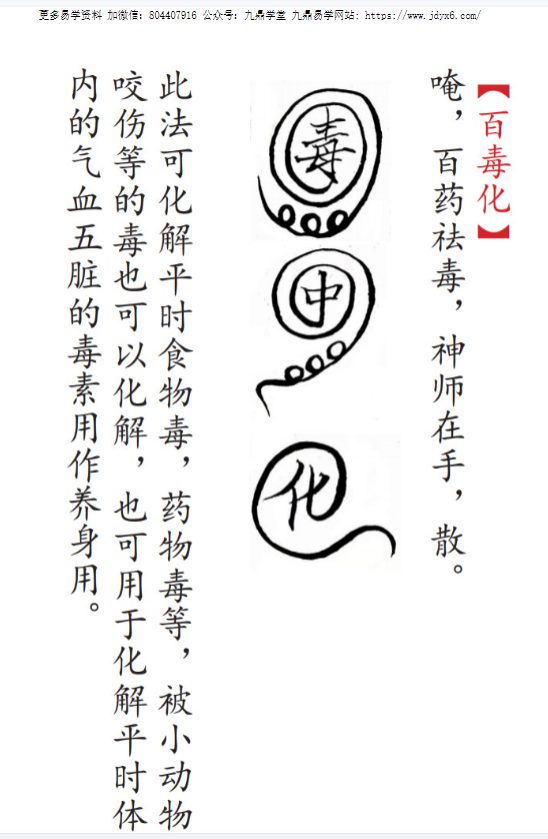 更多易学资料 加微信：804407916 公众号：九鼎学堂 九鼎易学网站: https://www.jdyx6.com/
【百毒化】
唵，百药祛毒，神师在手，散。
毒
中
化
此法可化解平时食物毒，药物毒等，被小动物
咬伤等的毒也可以化解，也可用于化解平时体
内的气血五脏的毒素用作养身用。